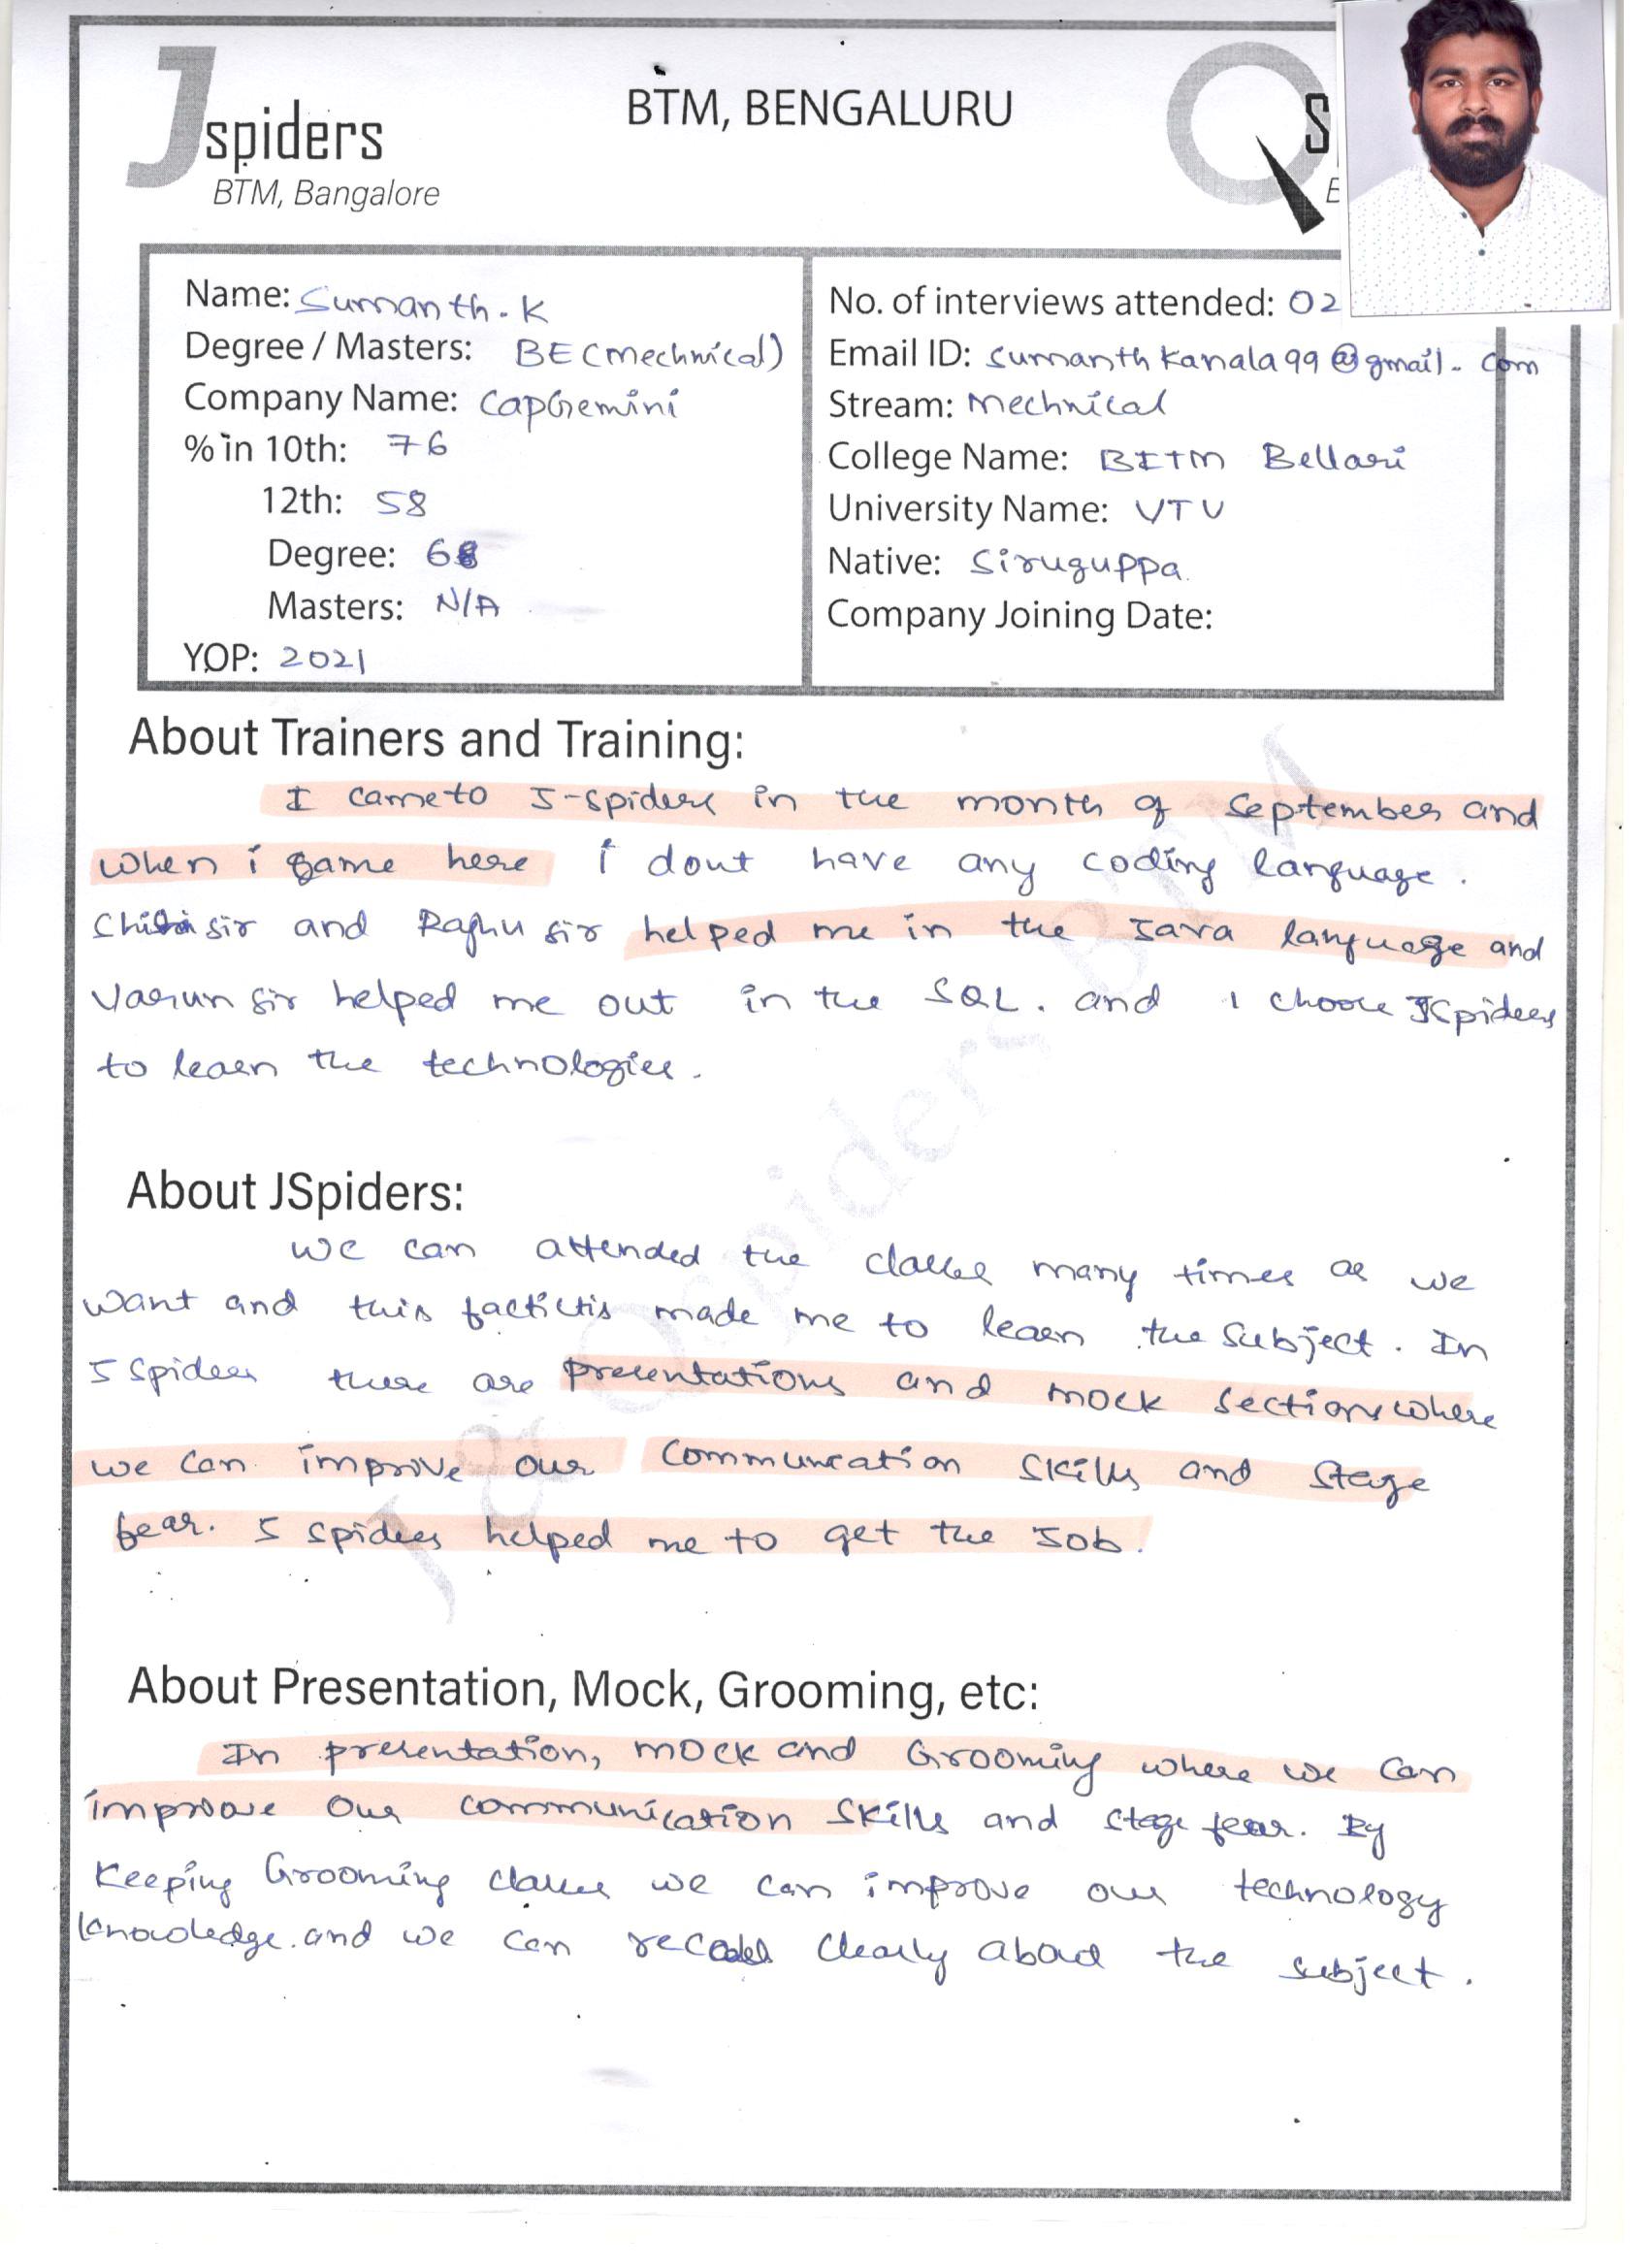 Jspiders
BTM, Bangalore
BTM, BENGALURU
QS
E
Name: Sumanth. K
Degree / Masters: BE (mechnical)
Company Name: CapGemini
% in 10th: 76
12th: 58
Degree: 68
Masters: N/A
YOP: 2021
No. of interviews attended: 02
Email ID: sumanthkanala99@gmail.com
Stream: mechnical
College Name: BITM Bellari
University Name: VTU
Native: Siruguppa
Company Joining Date:
About Trainers and Training:
I came to J-spiders in the month of September and
when i game here i dont have any coding language.
sir and Raghu sir helped me in the Java language and
Varun sir helped me out in the SQL. and I choose JSpiders
to learn the technologies.
About JSpiders:
We can attended the classes many times as we
want and this made me to learn the subject. In
J Spiders there are presentations and mock sections where
we can improve our communcation skills and stage
fear. J spiders helped me to get the Job.
About Presentation, Mock, Grooming, etc:
In presentation, mock and Grooming where we can
improve our communication skills and stage fear. By
Keeping Grooming classes we can improve our technology
knowledge. and we can clearly about the subject.
J & Qspiders BTM